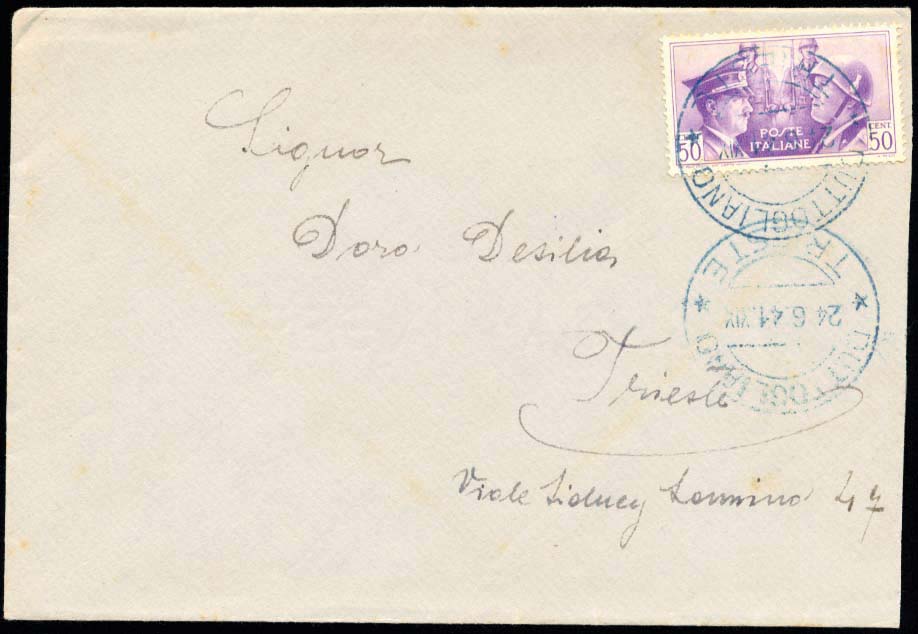 Signor
Doro Desilia
Trieste
Viale Sidney Sonnino 47
50 POSTE CENT. 50
ITALIANE
DUTTOGLIANO
TRIESTE
24.6.41.XIX
DUTTOGLIANO